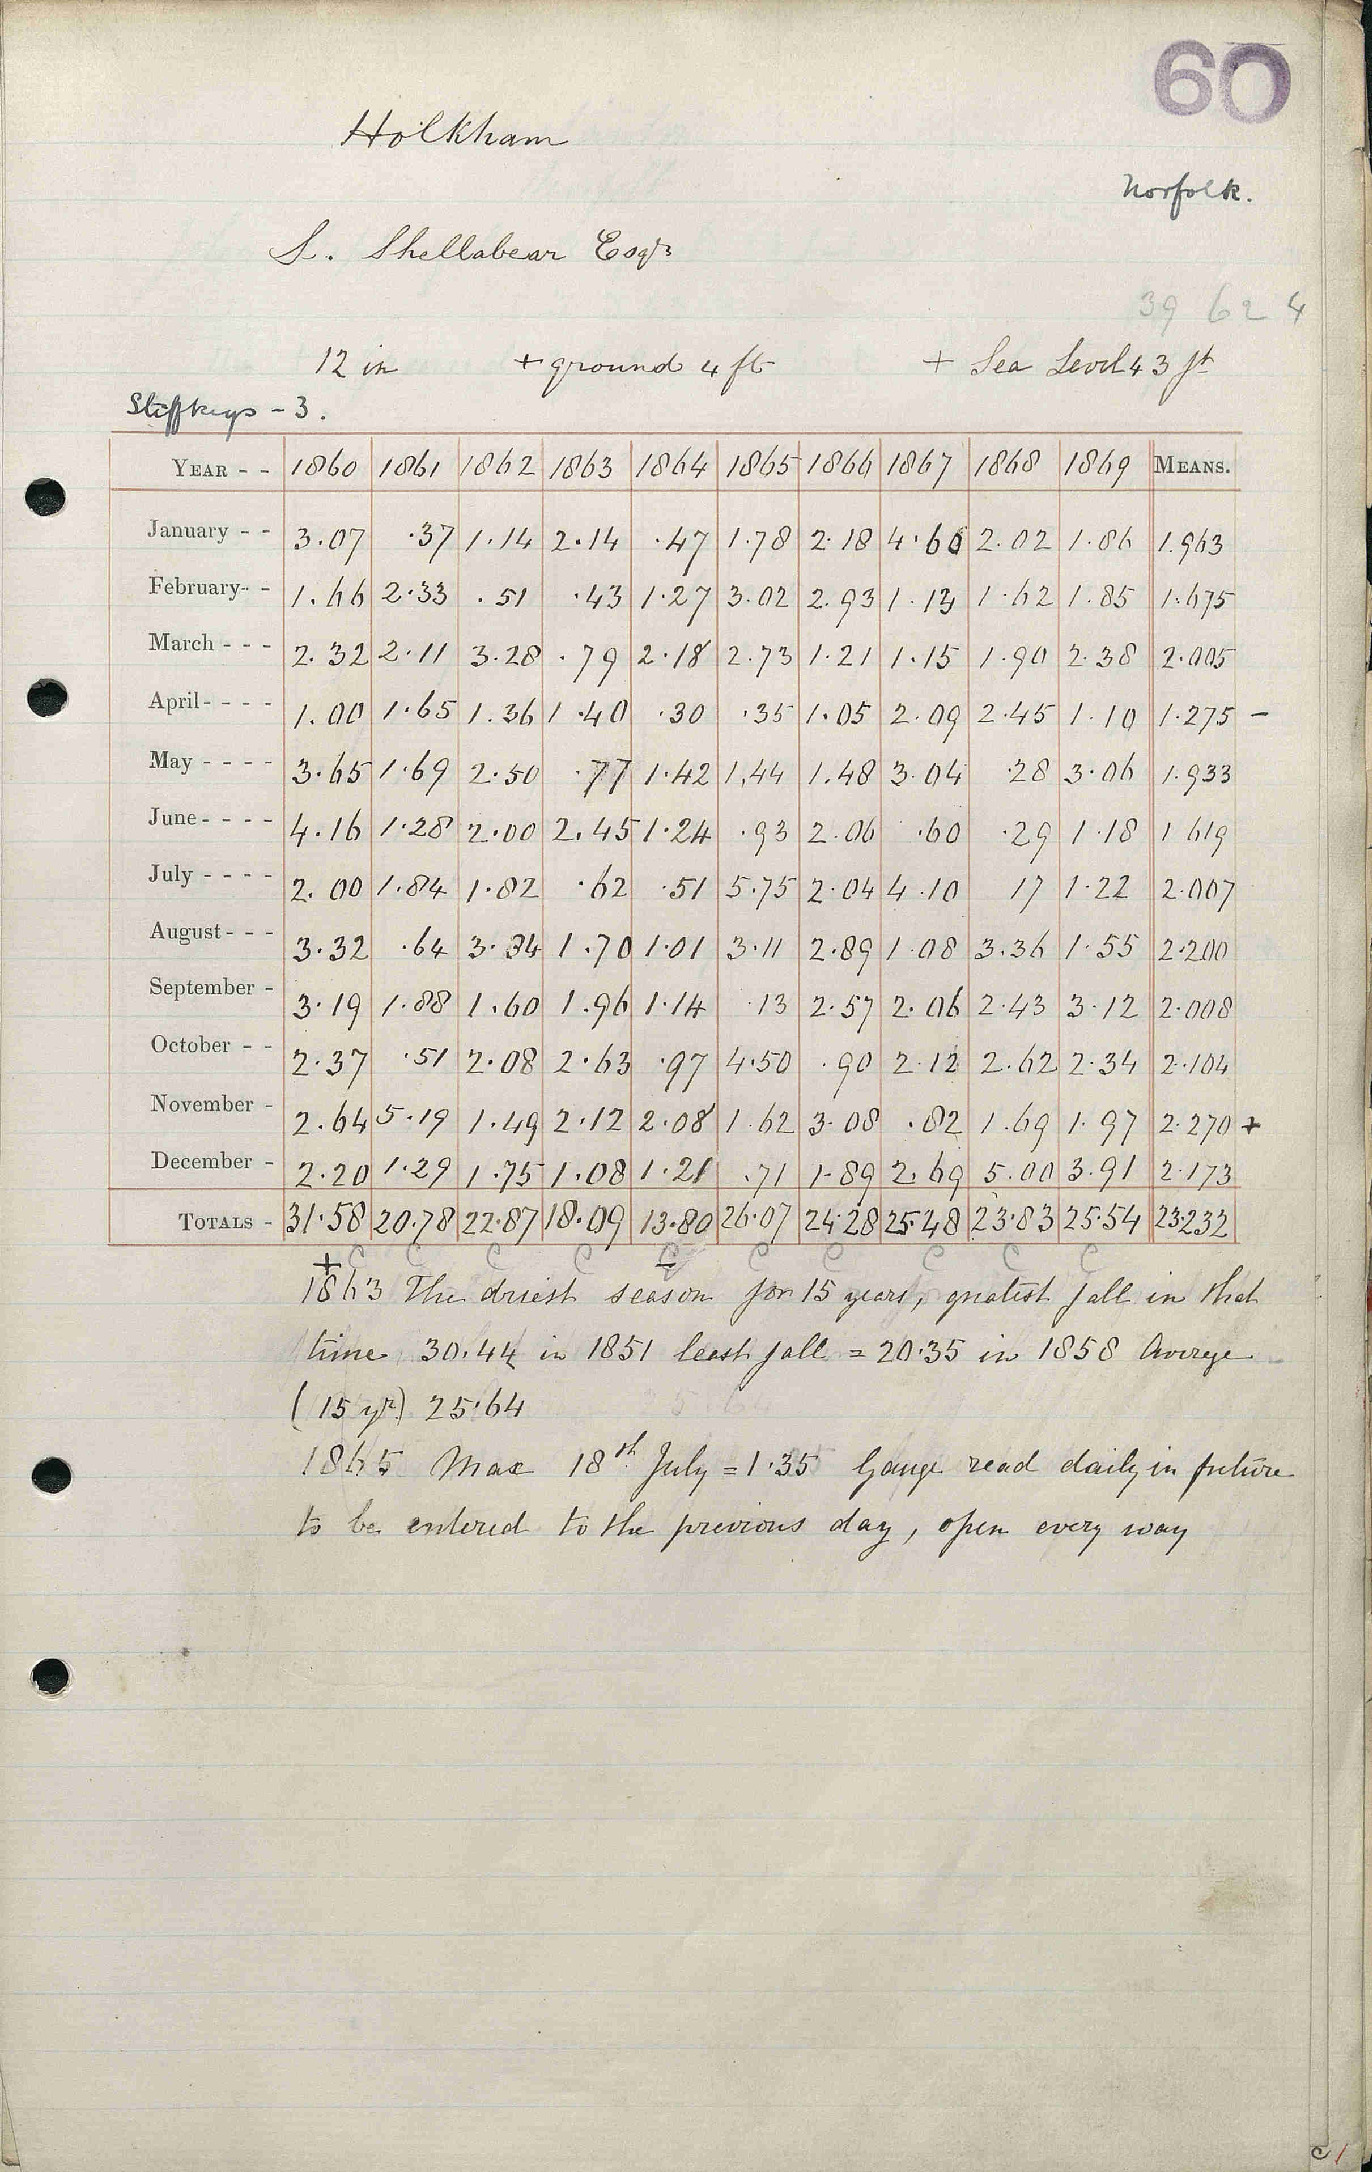 60
Holkham
Norfolk.
S. Shellabear Esqr
39 62 4
12 in + ground 4 ft + Sea Level 43 ft
Stiffkeys - 3.
YEAR - - 1860 1861 1862 1863 1864 1865 1866 1867 1868 1869 MEANS.
January - - 3.07 .37 1.14 2.14 .47 1.78 2.18 4.66 2.02 1.86 1.963
February- - 1.66 2.33 .51 .43 1.27 3.02 2.93 1.13 1.62 1.85 1.675
March - - - 2.32 2.11 3.28 .79 2.18 2.73 1.21 1.15 1.90 2.38 2.005
April- - - - 1.00 1.65 1.36 1.40 .30 .35 1.05 2.09 2.45 1.10 1.275 -
May - - - - 3.65 1.69 2.50 .77 1.42 1.44 1.48 3.04 .28 3.06 1.933
June- - - - 4.16 1.28 2.00 2.45 1.24 .93 2.06 .60 .29 1.18 1 619
July - - - - 2.00 1.84 1.82 .62 .51 5.75 2.04 4.10 17 1.22 2.007
August- - - 3.32 .64 3.34 1.70 1.01 3.11 2.89 1.08 3.36 1.55 2.200
September - 3.19 1.88 1.60 1.96 1.14 .13 2.57 2.06 2.43 3.12 2.008
October - - 2.37 .51 2.08 2.63 .97 4.50 .90 2.12 2.62 2.34 2.104
November - 2.64 5.19 1.49 2.12 2.08 1.62 3.08 .82 1.69 1.97 2.270 +
December - 2.20 1.29 1.75 1.08 1.21 .71 1.89 2.69 5.00 3.91 2.173
TOTALS - 31.58 20.78 22.87 18.09 13.80 26.07 24.28 25.48 23.83 25.54 23.232
+ C C C C C C C C C C
1863 The driest season for 15 years, greatest fall in that
time 30.44 in 1851 least fall = 20.35 in 1858 Average
(15 yr) 25.64
1865 Max 18th July = 1.35 Gauge read daily in future
to be entered to the previous day, open every way